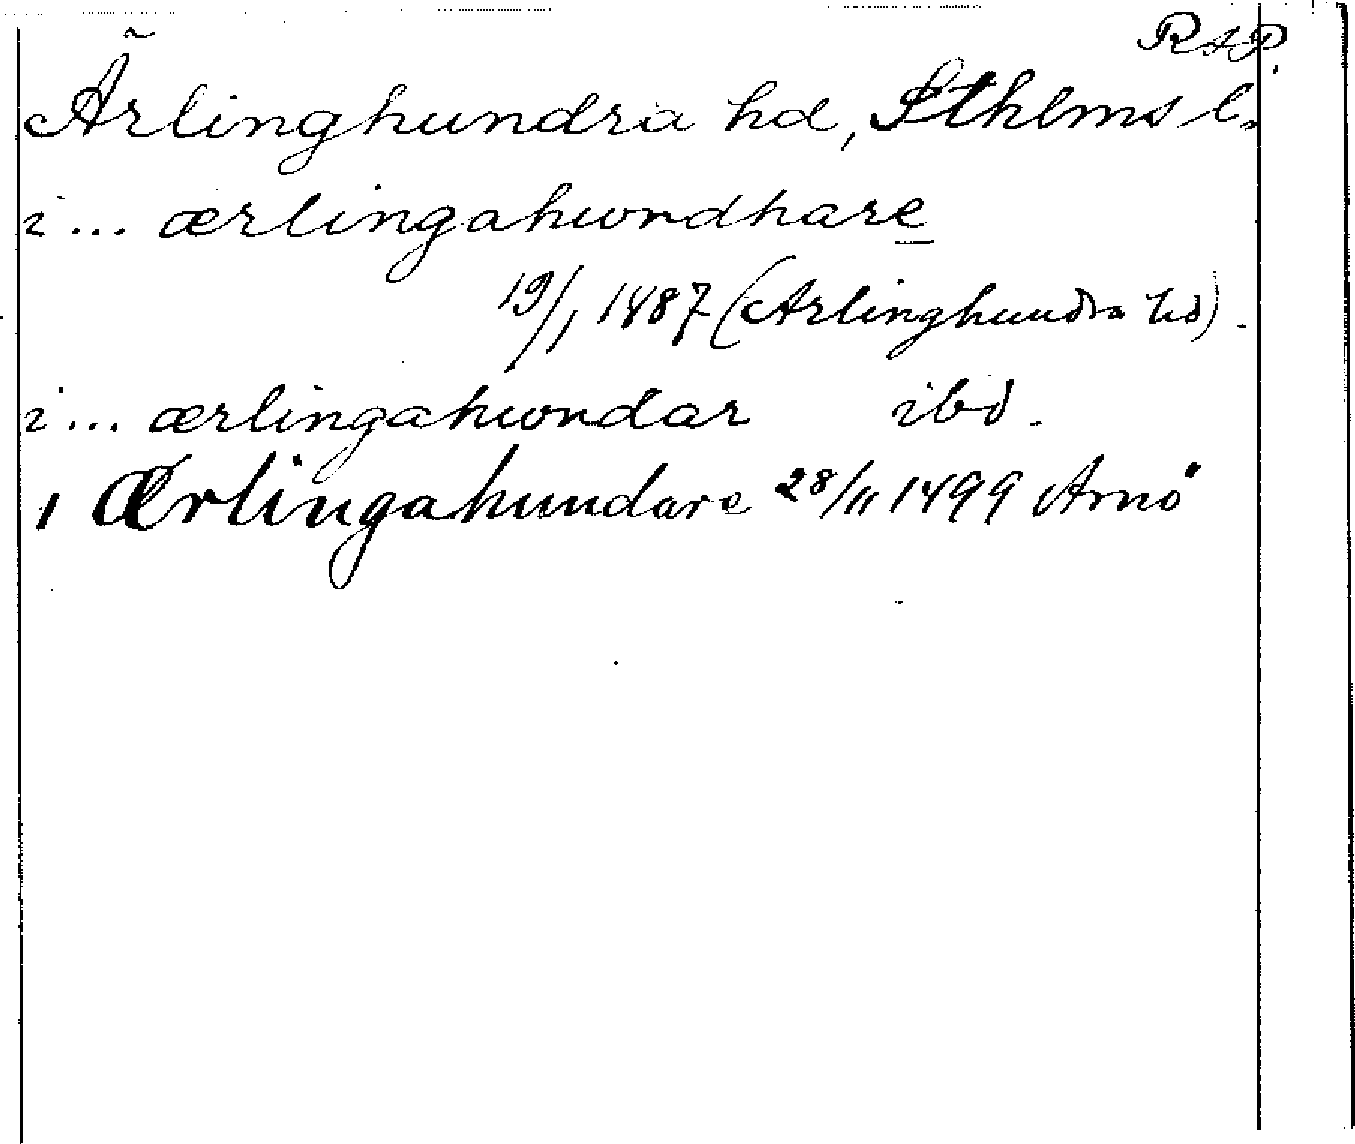 RAP.
Ärlinghundra hd, Sthlms l.
i ... ærlingahwndhare
19/1 1487 (Ärlinghundra hd).
i ... ærlingahwndar ibd.
i Ærlingahundare 28/11 1499 Arnö